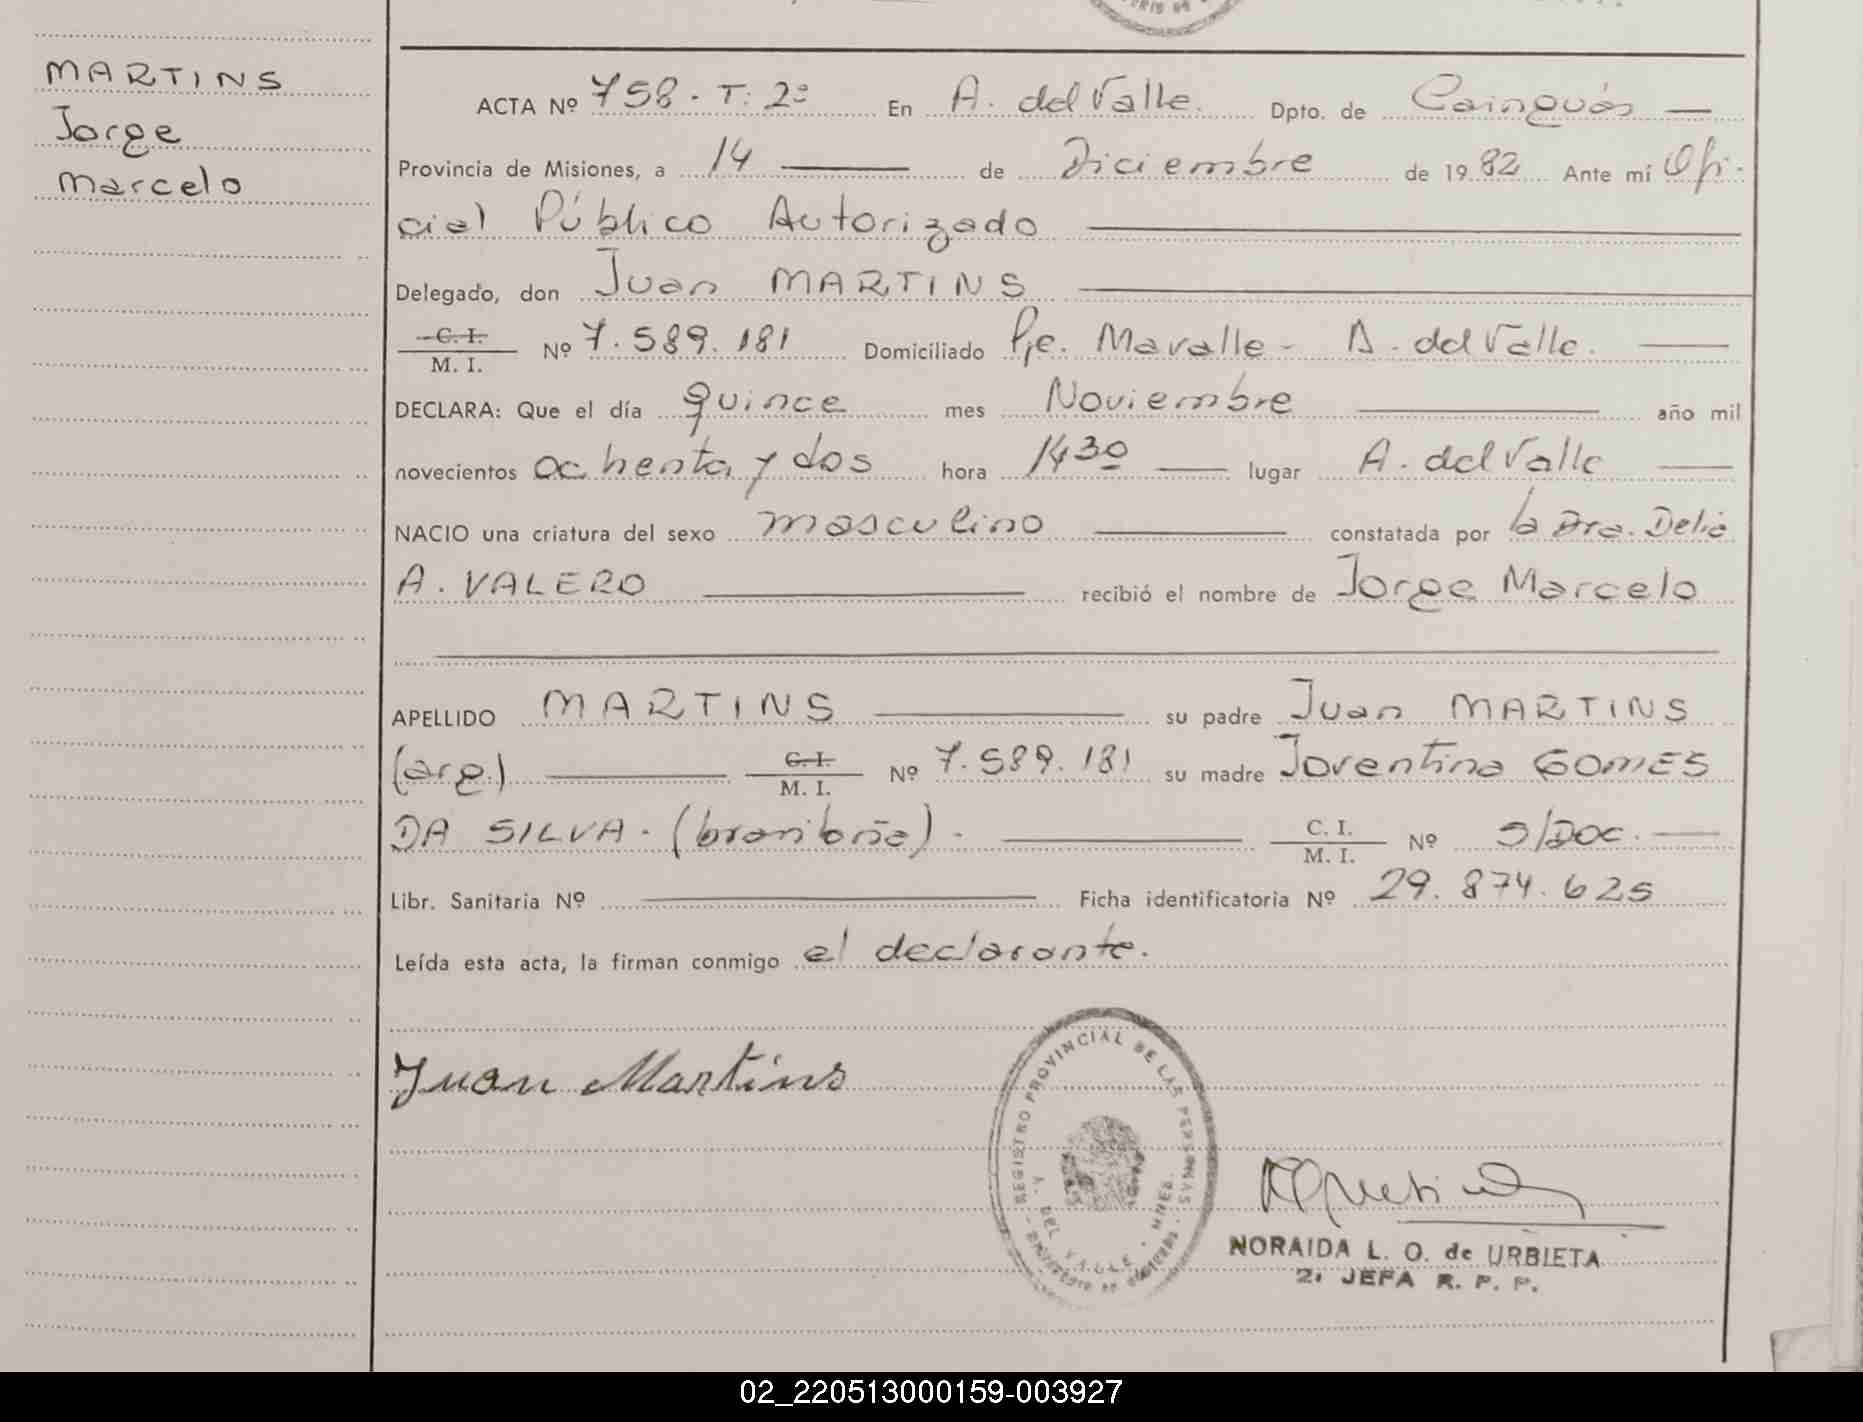 MARTINS
Jorge
Marcelo
ACTA Nº 758 - T: 2º En A. del Valle. Dpto. de Cainguás
Provincia de Misiones, a 14 de Diciembre de 1982 Ante mí Ofi-
cial Público Autorizado
Delegado, don Juan MARTINS
C. I.
M. I. Nº 7.589.181 Domiciliado Pje. Mavalle - A. del Valle.
DECLARA: Que el día quince mes Noviembre año mil
novecientos ochenta y dos hora 14 30 lugar A. del Valle
NACIO una criatura del sexo masculino constatada por la Dra. Delia
A. VALERO recibió el nombre de Jorge Marcelo
APELLIDO MARTINS su padre Juan MARTINS
(arg.) C. I. M. I. Nº 7.589.181 su madre Joventina GOMES
DA SILVA - (brasileña) - C. I. M. I. Nº S/DOC.
Libr. Sanitaria Nº Ficha identificatoria Nº 29.874.625
Leída esta acta, la firman conmigo el declarante.
Juan Martins
REGISTRO PROVINCIAL DE LAS PERSONAS
A. DEL VALLE - MNES.
NORAIDA L. O. de URBIETA
2ª JEFA R. P. P.
02_220513000159-003927